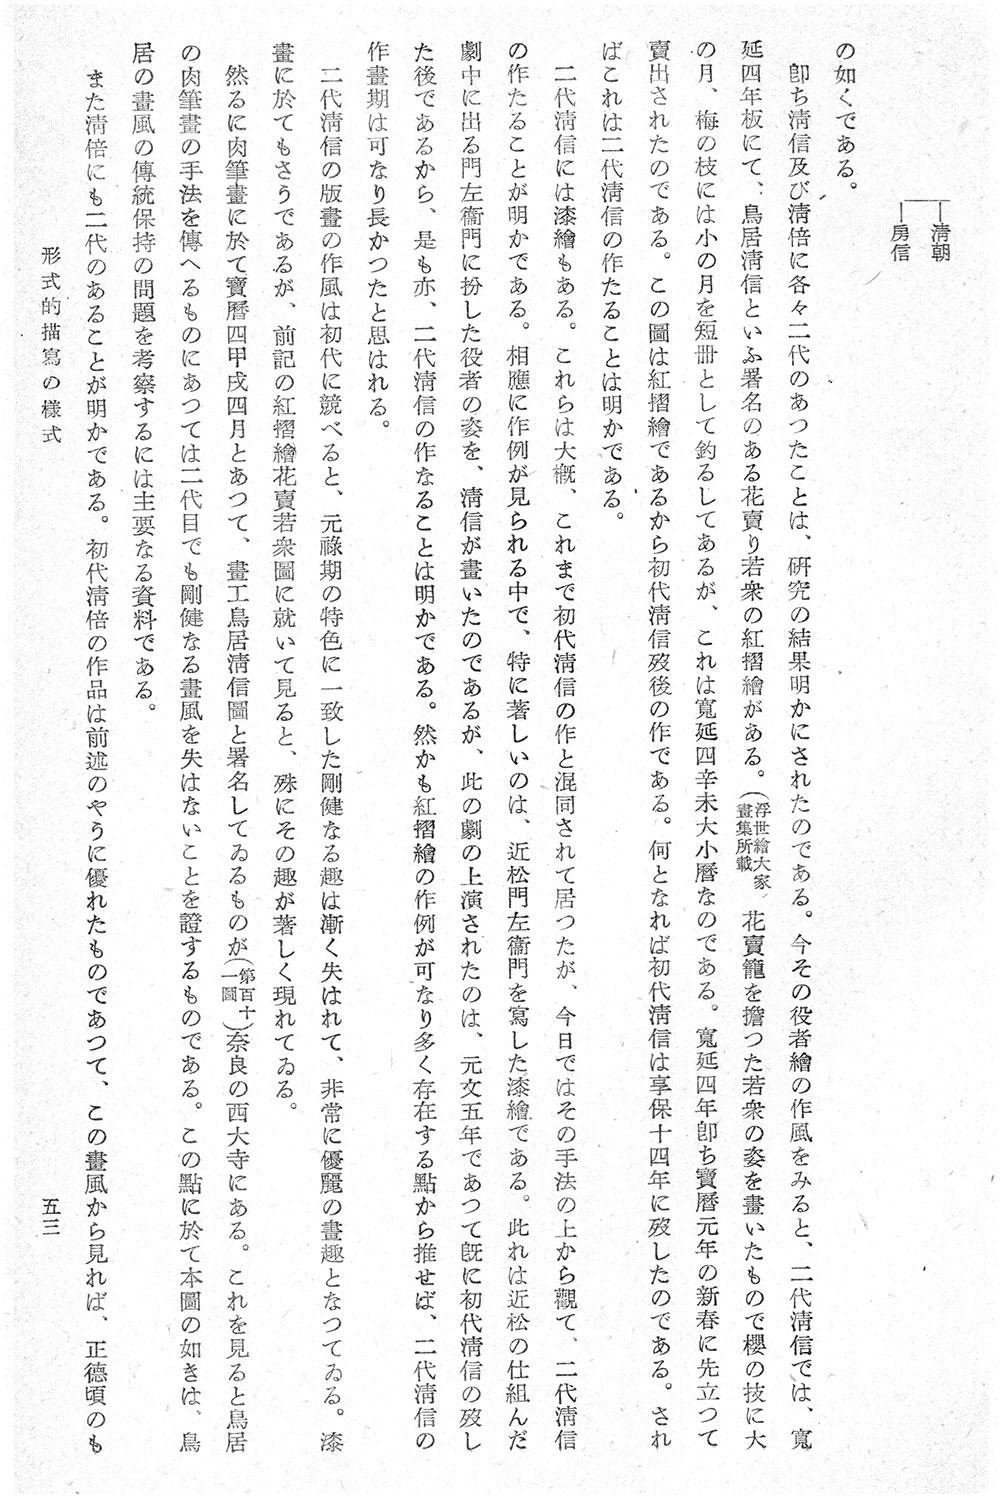 清朝
房信
の如くである。
卽ち淸信及び淸倍に各々二代のあつたことは、硏究の結果明かにされたのである。今その役者繪の作風をみると、二代淸信では、寬
延四年板にて、鳥居淸信といふ署名のある花賣り若衆の紅摺繪がある。(浮世繪大家畫集所載)花賣籠を擔つた若衆の姿を畫いたもので櫻の技に大
の月、梅の枝には小の月を短冊として釣るしてあるが、これは寬延四辛未大小曆なのである。寬延四年卽ち寶曆元年の新春に先立つて
賣出されたのである。この圖は紅摺繪であるから初代淸信歿後の作である。何となれば初代淸信は享保十四年に歿したのである。され
ばこれは二代淸信の作たることは明かである。
二代淸信には漆繪もある。これらは大槪、これまで初代淸信の作と混同されて居つたが、今日ではその手法の上から觀て、二代淸信
の作たることが明かである。相應に作例が見られる中で、特に著しいのは、近松門左衞門を寫した漆繪である。此れは近松の仕組んだ
劇中に出る門左衞門に扮した役者の姿を、淸信が畫いたのであるが、此の劇の上演されたのは、元文五年であつて旣に初代淸信の歿し
た後であるから、是も亦、二代淸信の作なることは明かである。然かも紅摺繪の作例が可なり多く存在する點から推せば、二代淸信の
作畫期は可なり長かつたと思はれる。
二代淸信の版畫の作風は初代に競べると、元祿期の特色に一致した剛健なる趣は漸く失はれて、非常に優麗の畫趣となつてゐる。漆
畫に於てもさうであるが、前記の紅摺繪花賣若衆圖に就いて見ると、殊にその趣が著しく現れてゐる。
然るに肉筆畫に於て寶曆四甲戌四月とあつて、畫工鳥居淸信圖と署名してゐるものが(第百十一圖)奈良の西大寺にある。これを見ると鳥居
の肉筆畫の手法を傳へるものにあつては二代目でも剛健なる畫風を失はないことを證するものである。この點に於て本圖の如きは、鳥
居の畫風の傳統保持の問題を考察するには主要なる資料である。
また淸倍にも二代のあることが明かである。初代淸倍の作品は前述のやうに優れたものであつて、この畫風から見れば、正德頃のも
形式的描寫の樣式
五三